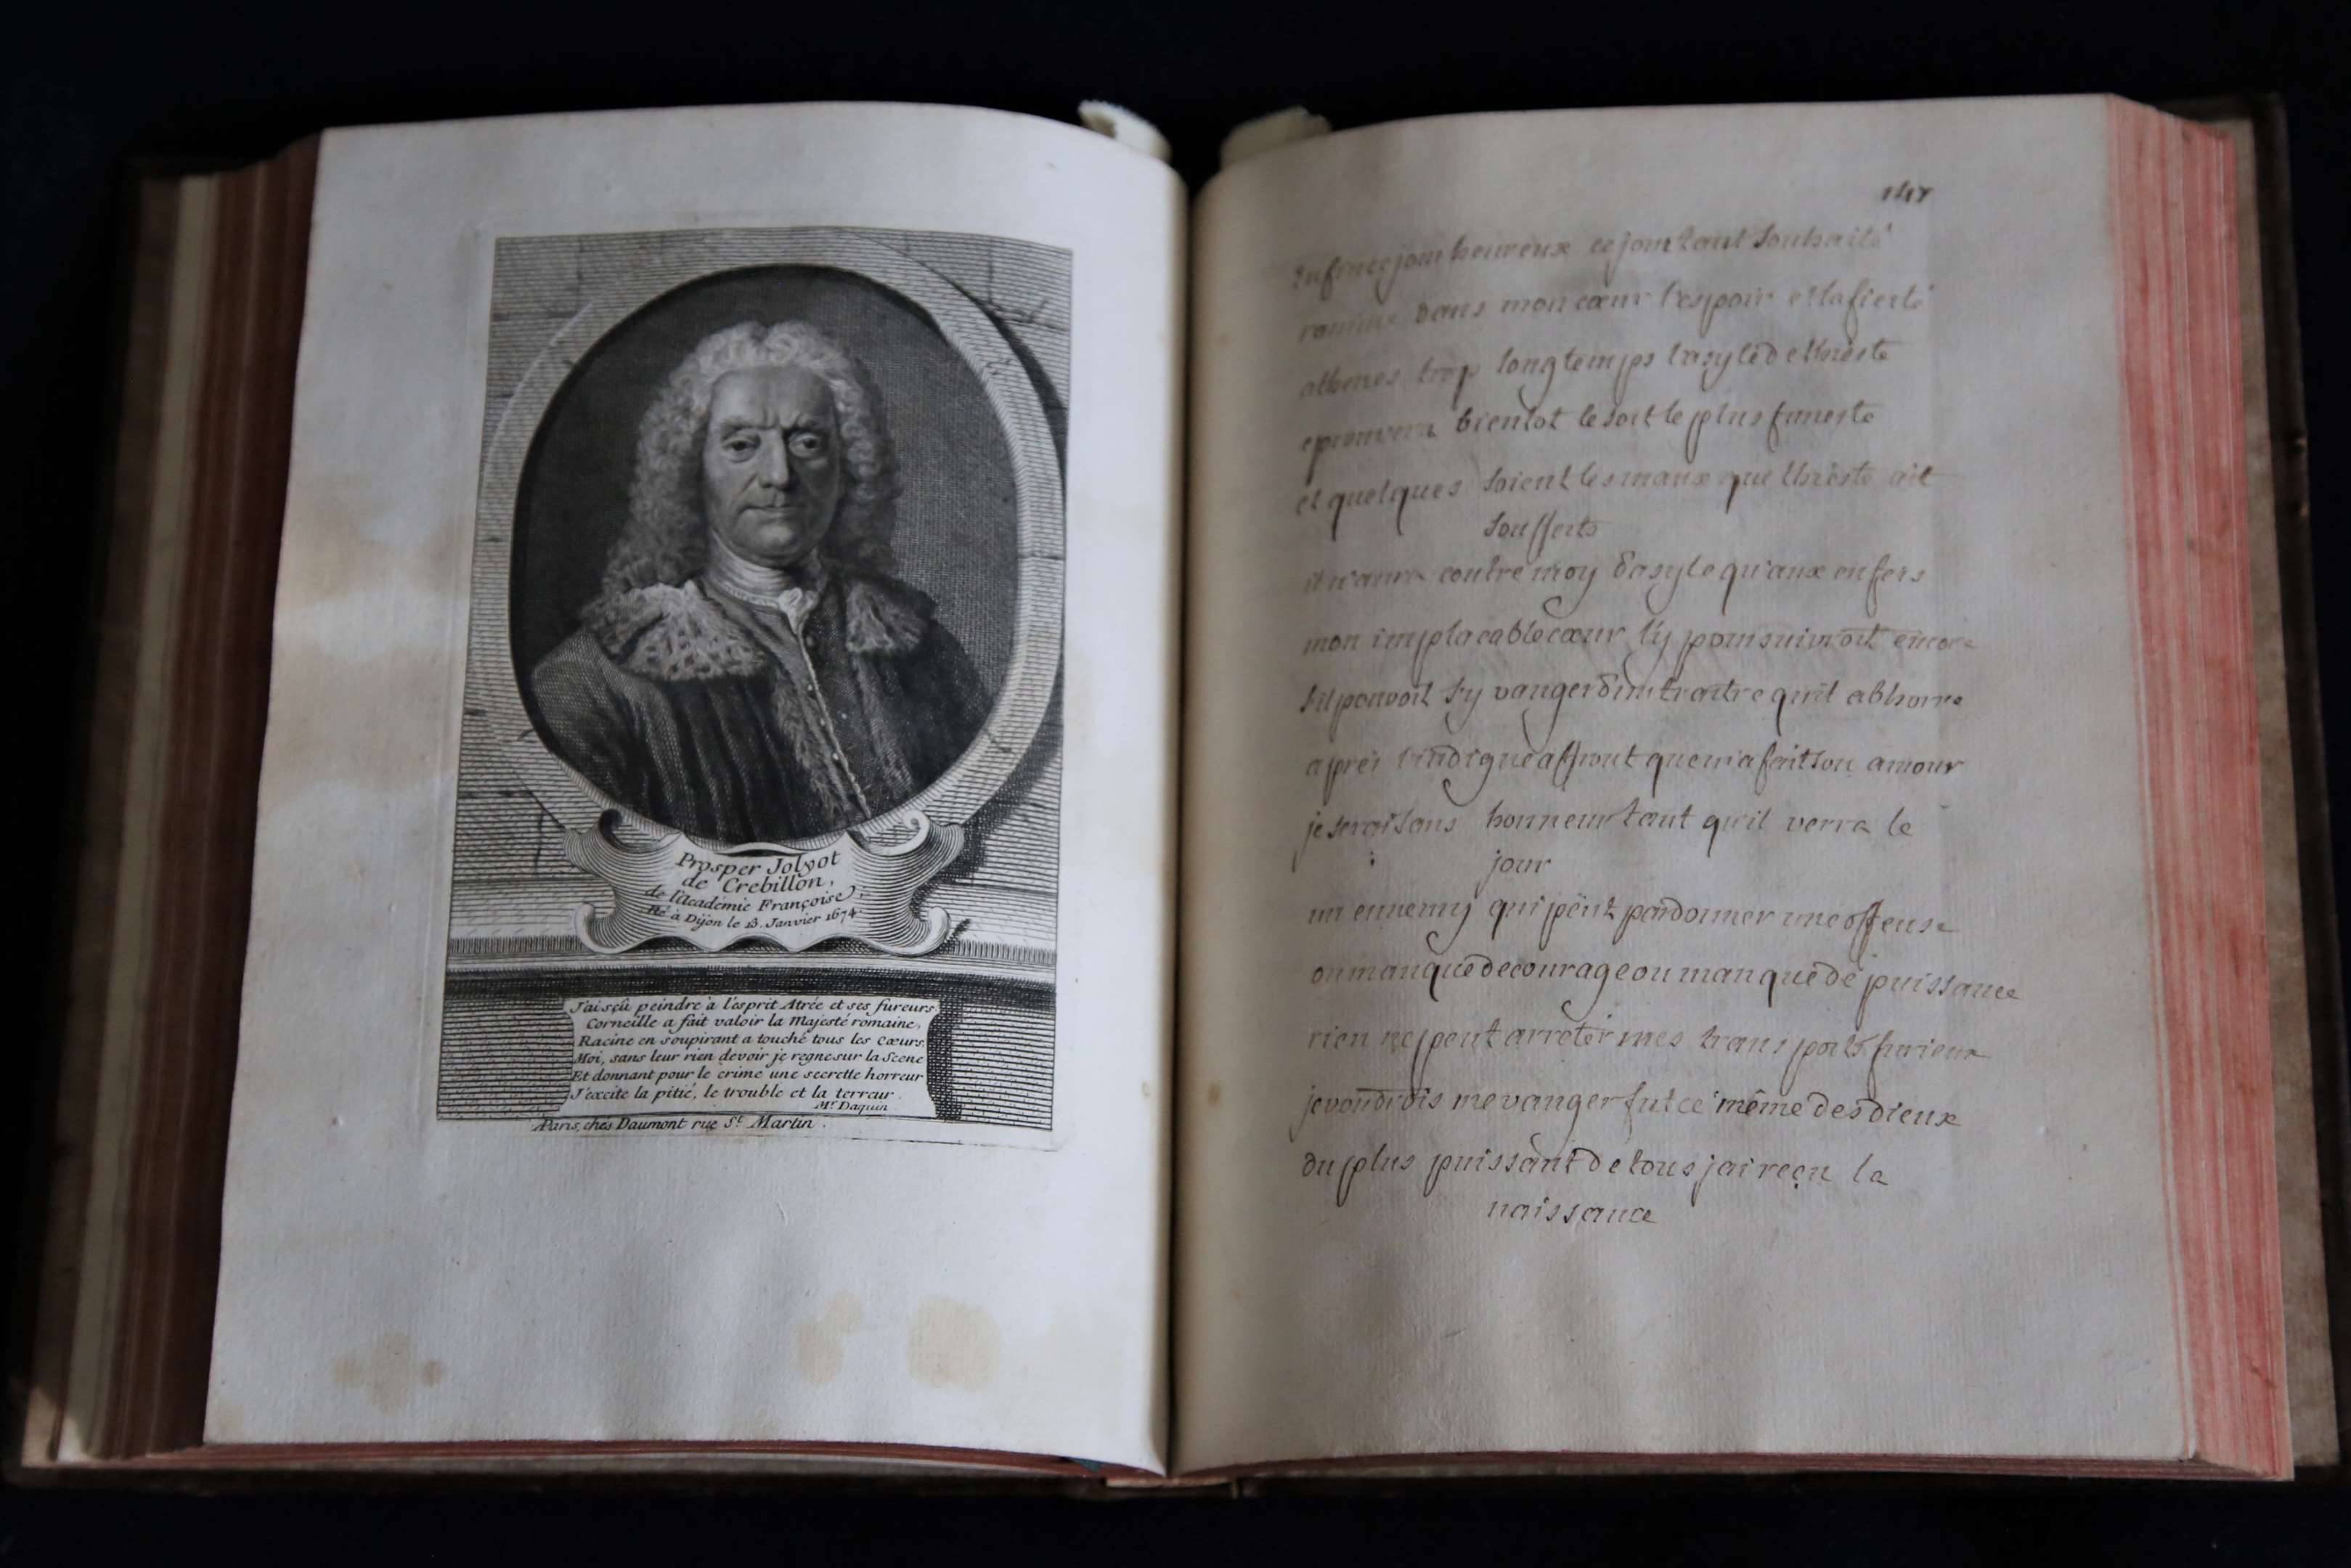 Prosper Jolyot
de Crebillon,
de l'Academie Françoise,
Né à Dijon le 13. Janvier 1674
J'ai sçû peindre à l'esprit Atrée et ses fureurs
Corneille a fait valoir la Majesté romaine,
Racine en soupirant a touché tous les Cœurs.
Moi, sans leur rien devoir je regne sur la Scene
Et donnant pour le crime une secrette horreur
J'excite la pitié, le trouble et la terreur.
Mr Daquin
A Paris, chés Daumont rue St. Martin.
enfin ce jour heureux ce jour tant souhaité
ranime dans mon cœur l'espoir et la fierté
athenes trop longtemps l'asyle de thieste
eprouvera bientot le sort le plus funeste
et quelques soient les maux que thieste ait
soufferts
il n'aura contre moy d'asyle qu'aux enfers
mon implacable cœur l'y poursuivroit encore
s'il pouvoit s'y vanger d'un traitre qu'il abhorre
après l'indigne affront que m'a fait son amour
je serai sans honneur tant qu'il verra le
jour
un ennemy qui peut pardonner une offense
ou manque de courage ou manque de puissance
rien ne peut arreter mes transports furieux
je voudrois me vanger fut ce même des dieux
du plus puissant de tous jai reçu la
naissance